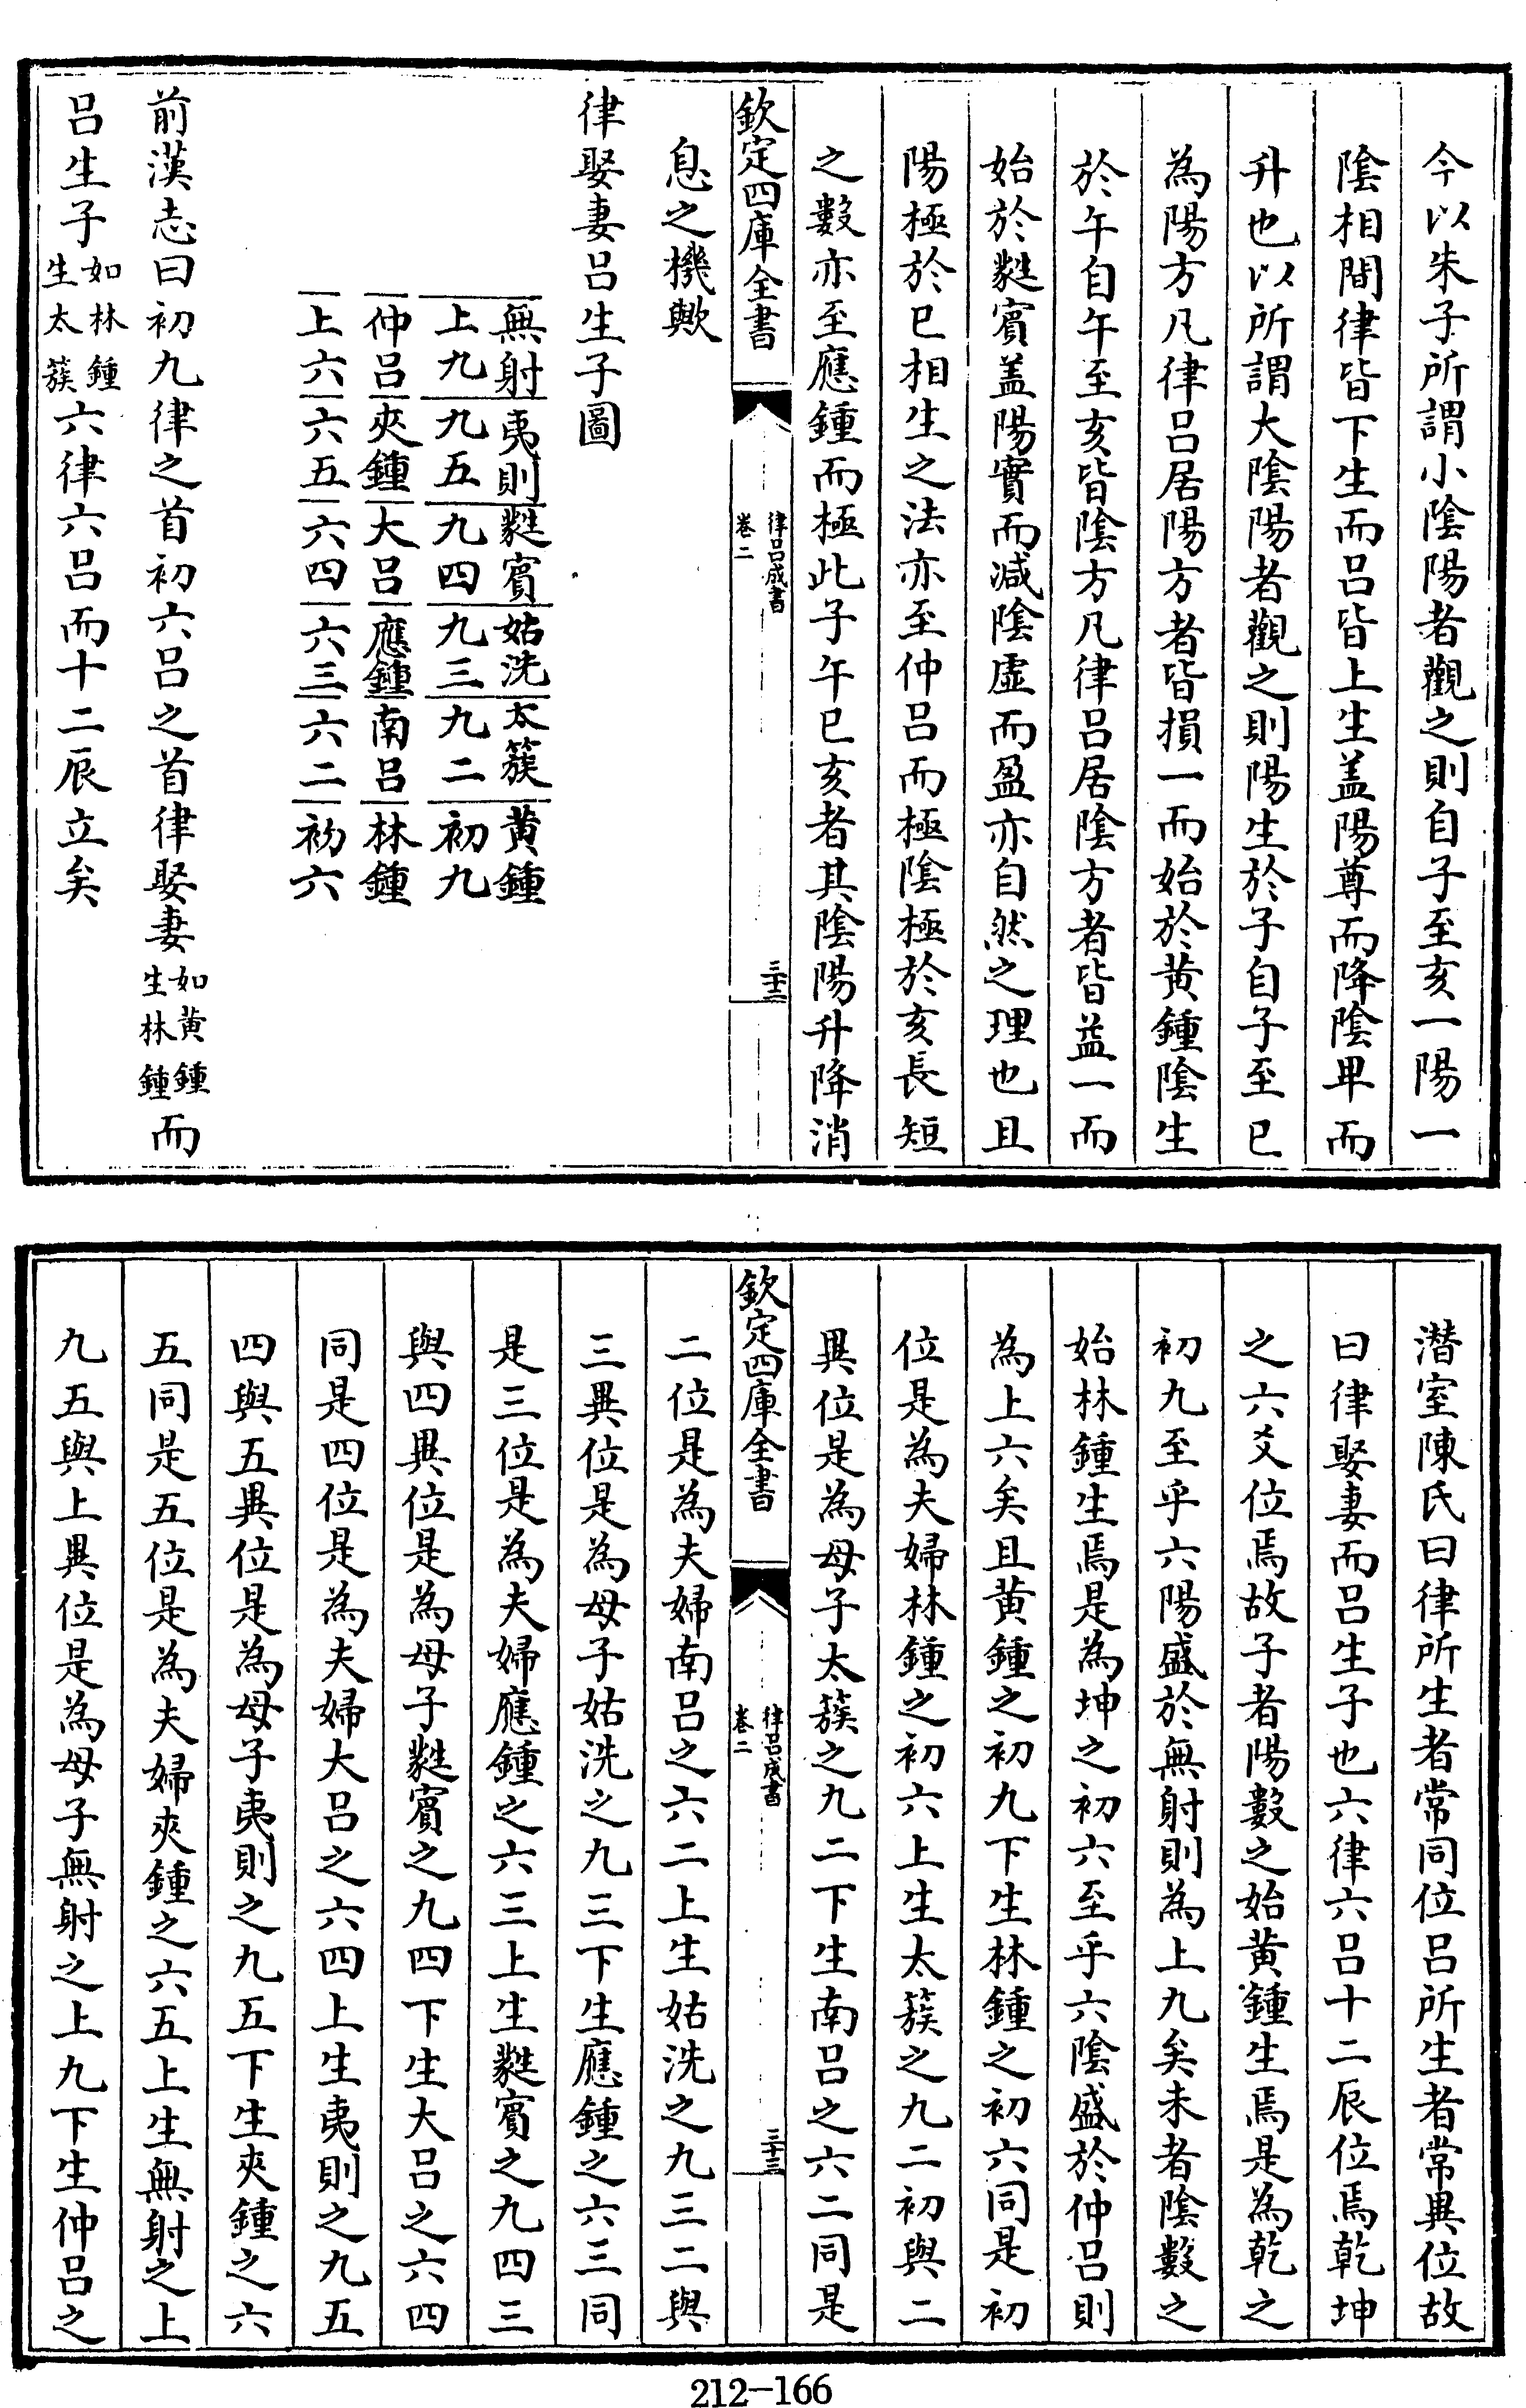 今以朱子所謂小陰陽者觀之則自子至亥一陽一
陰相間律皆下生而呂皆上生盖陽尊而降陰卑而
升也以所謂大陰陽者觀之則陽生於子自子至巳
為陽方凡律呂居陽方者皆損一而始於黃鍾陰生
於午自午至亥皆陰方凡律呂居陰方者皆益一而
始於蕤賓盖陽實而減陰虛而盈亦自然之理也且
陽極於巳相生之法亦至仲呂而極陰極於亥長短
之數亦至應鍾而極此子午巳亥者其陰陽升降消
欽定四庫全書
律呂成書
卷二
三十二
息之機歟
律娶妻呂生子圖
無射 夷則 蕤賓 姑洗 太簇 黃鍾
上九 九五 九四 九三 九二 初九
仲呂 夾鍾 大呂 應鍾 南呂 林鍾
上六 六五 六四 六三 六二 初六
前漢志曰初九律之首初六呂之首律娶妻如黃鍾生林鍾而
呂生子如林鍾生太簇六律六呂而十二辰立矣
潛室陳氏曰律所生者常同位呂所生者常異位故
曰律娶妻而呂生子也六律六呂十二辰位焉乾坤
之六爻位焉故子者陽數之始黃鍾生焉是為乾之
初九至乎六陽盛於無射則為上九矣未者陰數之
始林鍾生焉是為坤之初六至乎六陰盛於仲呂則
為上六矣且黃鍾之初九下生林鍾之初六同是初
位是為夫婦林鍾之初六上生太簇之九二初與二
異位是為母子太簇之九二下生南呂之六二同是
欽定四庫全書
律呂成書
卷二
三十三
二位是為夫婦南呂之六二上生姑洗之九三二與
三異位是為母子姑洗之九三下生應鍾之六三同
是三位是為夫婦應鍾之六三上生蕤賓之九四三
與四異位是為母子蕤賓之九四下生大呂之六四
同是四位是為夫婦大呂之六四上生夷則之九五
四與五異位是為母子夷則之九五下生夾鍾之六
五同是五位是為夫婦夾鍾之六五上生無射之上
九五與上異位是為母子無射之上九下生仲呂之
212-166